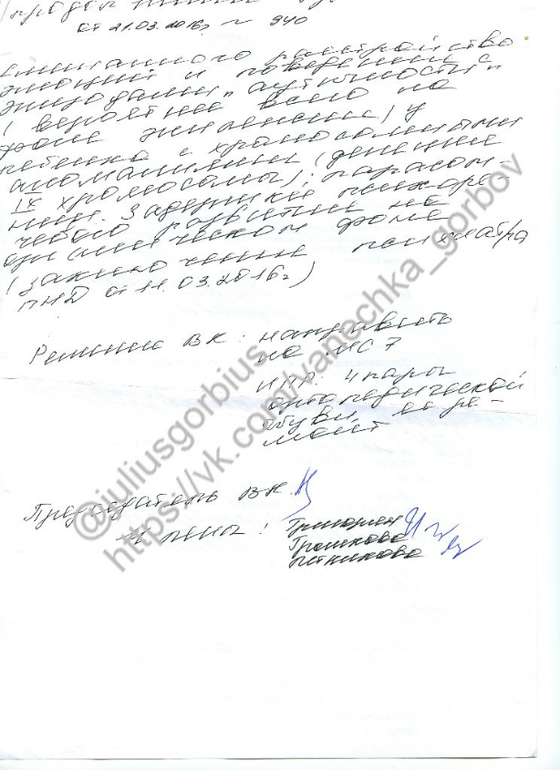 от 21.03.2016г № 940
расстройство
эмоций и поведения с
эпизодами "аутичности"
(вероятнее всего на
фоне эпилепсии) у
ребенка с хромосомными
аномалиями (делеции
IX хромосомы), парасом-
нии. Задержка психоре-
чевого развития на
органическом фоне
(заключение психиатра
ПНД от 11.03.2016г)
Решение ВК: направить
на МСЭ
ИПР: 4 пары
ортопедической
обуви, ее ре-
монт
Председатель ВК
Члены:
@juliusgorbius
https://vk.com/vanechka_gorbov